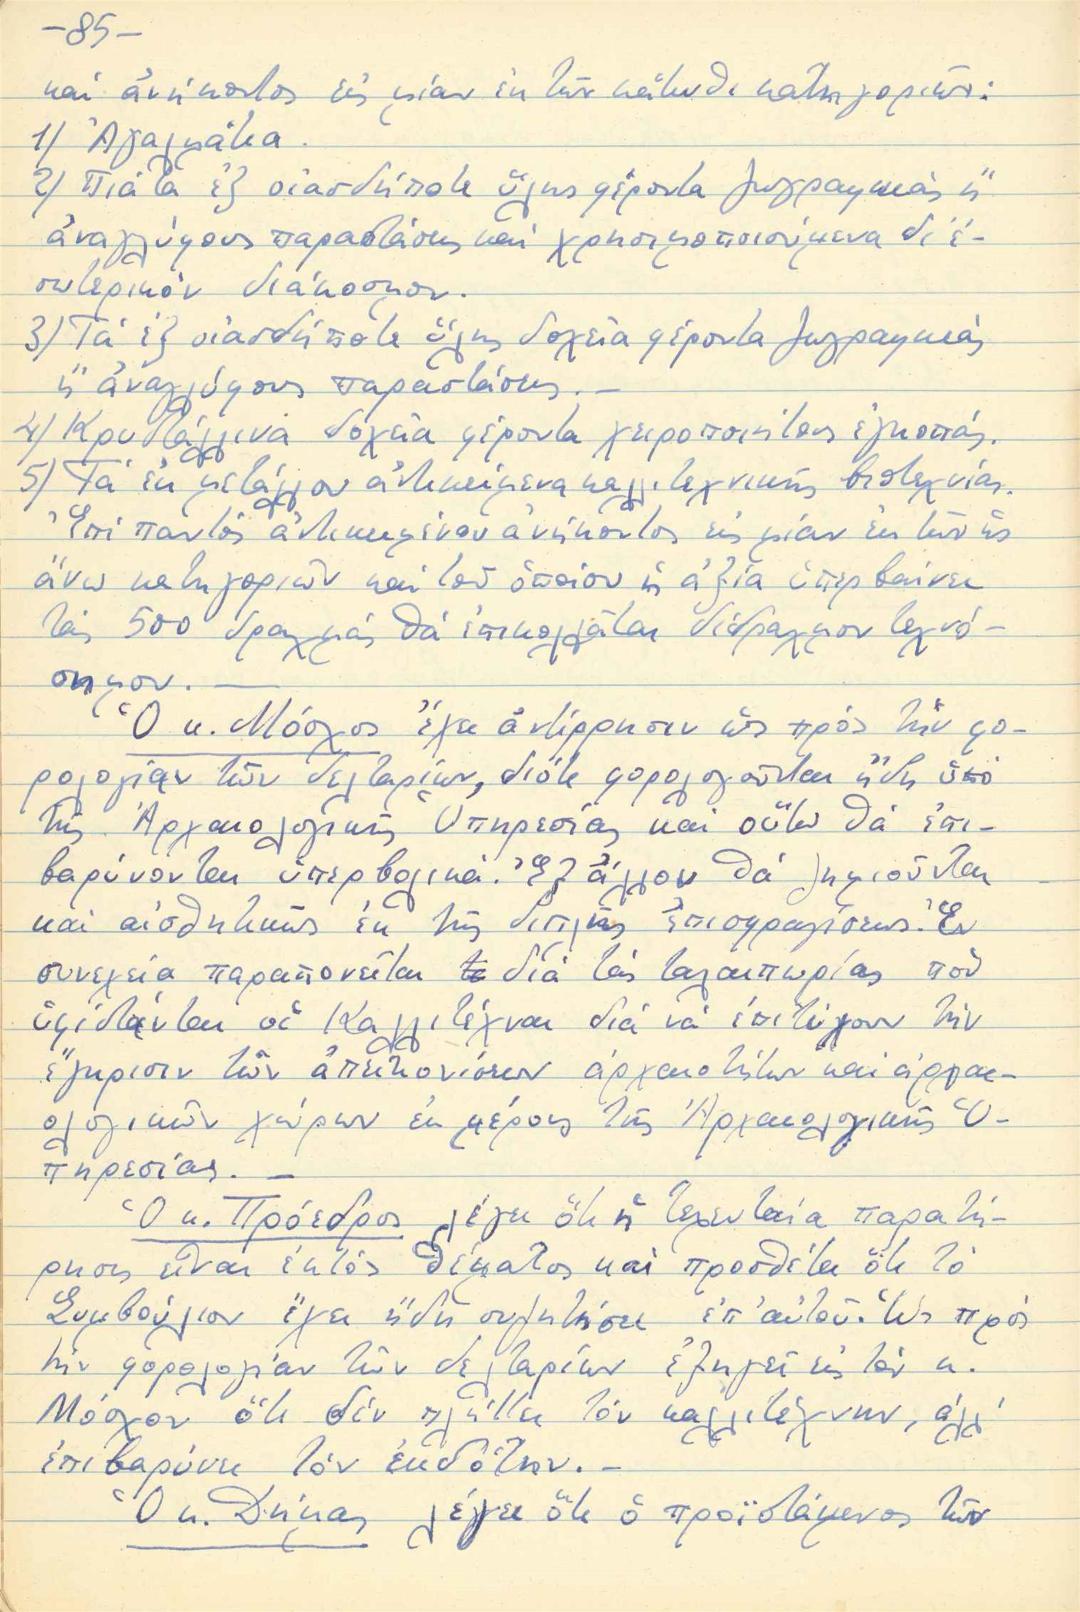 -85-
καί ἀνήκοντος εἰς μίαν ἐκ τῶν κάτωθι κατηγοριῶν:
1) Ἀγαλμάτια.
2) Πιάτα ἐξ οἱασδήποτε ὕλης φέροντα ζωγραφικάς ἤ
ἀναγλύφους παραστάσεις καί χρησιμοποιούμενα δι' ἐ-
σωτερικόν διάκοσμον.
3) Τά ἐξ οἱασδήποτε ὕλης δοχεῖα φέροντα ζωγραφικάς
ἤ ἀναγλύφους παραστάσεις.-
4) Κρυστάλλινα δοχεῖα φέροντα χειροποιήτους ἐγκοπάς.
5) Τά ἐκ μετάλλου ἀντικείμενα καλλιτεχνικῆς βιοτεχνίας.
Ἐπί παντός ἀντικειμένου ἀνήκοντος εἰς μίαν ἐκ τῶν ὡς
ἄνω κατηγοριῶν καί τοῦ ὁποίου ἡ ἀξία ὑπερβαίνει
τάς 500 δραχμάς θά ἐπικολλᾶται δίδραχμον τεχνό-
σημον.-
Ὁ κ. Μόσχος ἔχει ἀντίρρησιν ὡς πρός τήν φο-
ρολογίαν τῶν δελταρίων, διότι φορολογοῦνται ἤδη ὑπό
τῆς Ἀρχαιολογικῆς Ὑπηρεσίας καί οὕτω θά ἐπι-
βαρύνονται ὑπερβολικά. Ἐξ ἄλλου θά ζημιοῦνται
καί αἰσθητικῶς ἐκ τῆς διπλῆς ἐπισφραγίσεως. Ἐν
συνεχεία παραπονεῖται διά τάς ταλαιπωρίας πού
ὑφίστανται οἱ Καλλιτέχναι διά νά ἐπιτύχουν τήν
ἔγκρισιν τῶν ἀπεικονίσεων ἀρχαιοτήτων καί ἀρχαι-
ολογικῶν χώρων ἐκ μέρους τῆς Ἀρχαιολογικῆς Ὑ-
πηρεσίας.-
Ὁ κ. Πρόεδρος λέγει ὅτι ἡ τελευταία παρατή-
ρησις εἶναι ἐκτός θέματος καί προσθέτει ὅτι τό
Συμβούλιον ἔχει ἤδη συζητήσει ἐπ' αὐτοῦ. Ὡς πρός
τήν φορολογίαν τῶν δελταρίων ἐξηγεῖ εἰς τόν κ.
Μόσχον ὅτι δέν πλήττει τόν καλλιτέχνην, ἀλλ'
ἐπιβαρύνει τόν ἐκδότην.-
Ὁ κ. Δήμας λέγει ὅτι ὁ προϊστάμενος τῶν